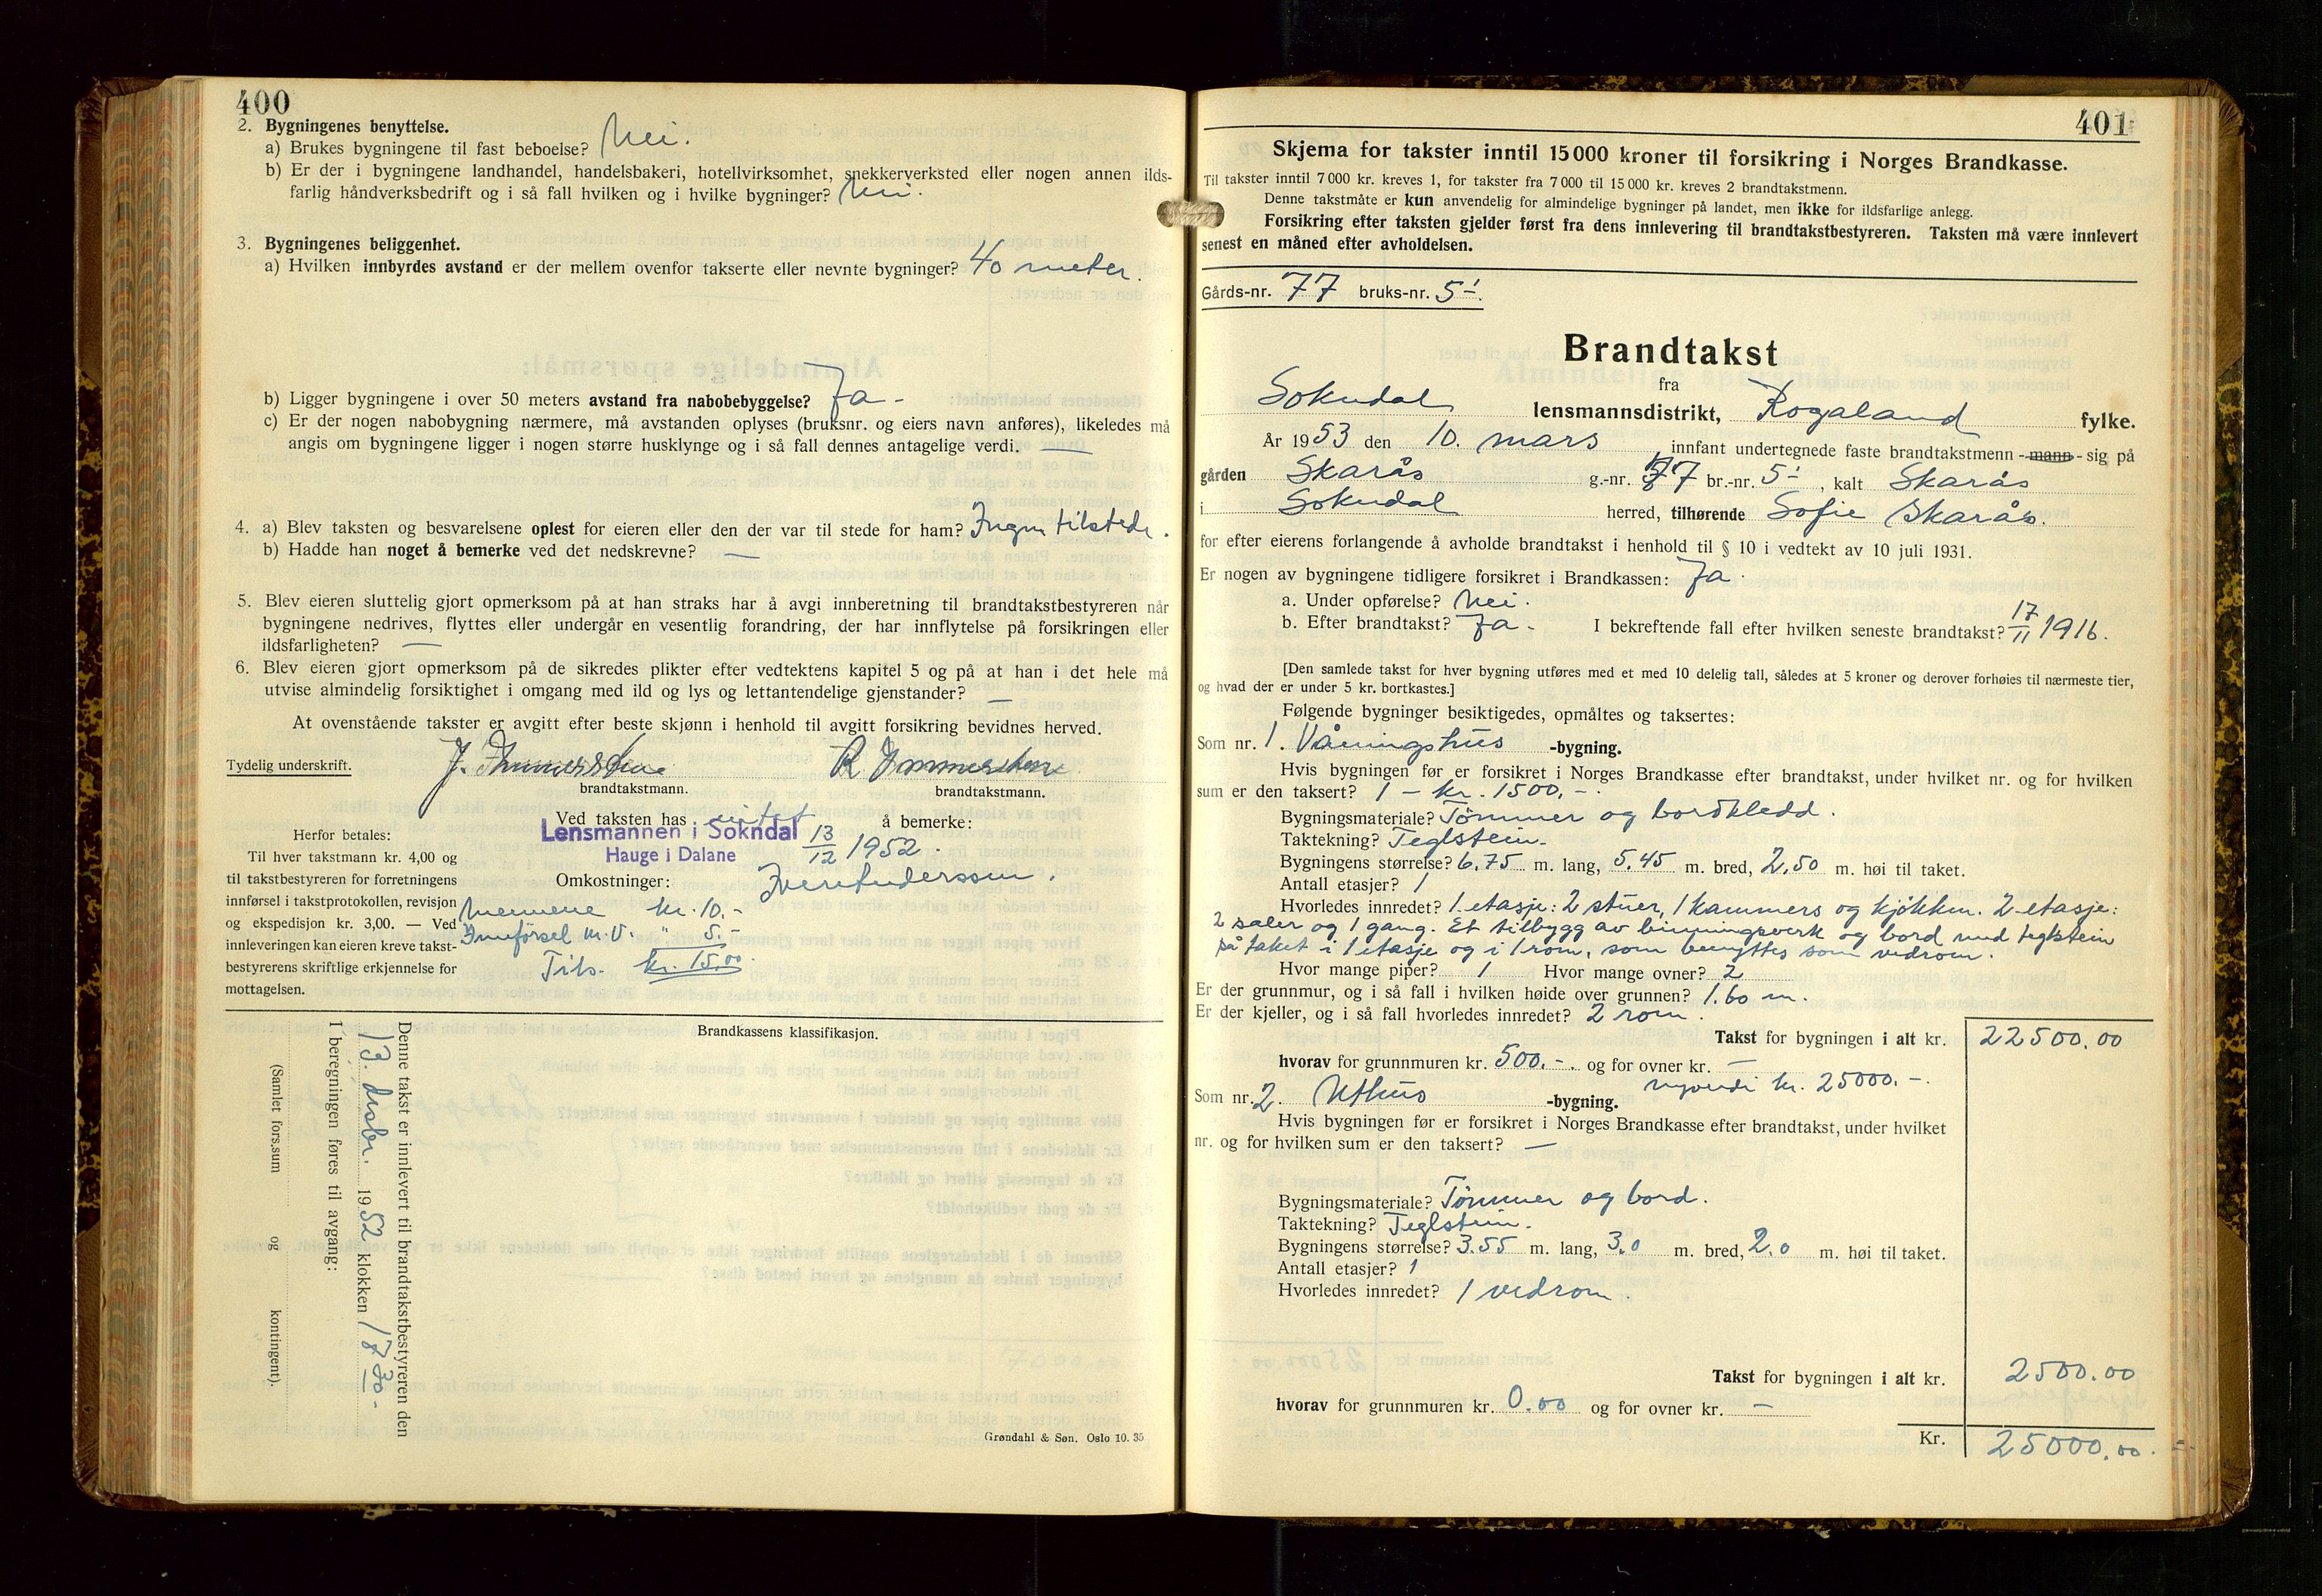 400
2. Bygningenes benyttelse.
a) Brukes bygningene til fast beboelse? Nei.
b) Er der i bygningene landhandel, handelsbakeri, hotellvirksomhet, snekkerverksted eller nogen annen ilds-
farlig håndverksbedrift og i så fall hvilken og i hvilke bygninger? Nei.
3. Bygningenes beliggenhet.
a) Hvilken innbyrdes avstand er der mellem ovenfor takserte eller nevnte bygninger? 40 meter.
b) Ligger bygningene i over 50 meters avstand fra nabobebyggelse? Ja -
c) Er der nogen nabobygning nærmere, må avstanden oplyses (bruksnr. og eiers navn anføres), likeledes må
angis om bygningene ligger i nogen større husklynge og i så fall dennes antagelige verdi. —
4. a) Blev taksten og besvarelsene oplest for eieren eller den der var til stede for ham? Ingen tilstede.
b) Hadde han noget å bemerke ved det nedskrevne? —
5. Blev eieren sluttelig gjort opmerksom på at han straks har å avgi innberetning til brandtakstbestyreren når
bygningene nedrives, flyttes eller undergår en vesentlig forandring, der har innflytelse på forsikringen eller
ildsfarligheten? —
6. Blev eieren gjort opmerksom på de sikredes plikter efter vedtektens kapitel 5 og på at han i det hele må
utvise almindelig forsiktighet i omgang med ild og lys og lettantendelige gjenstander? —
At ovenstående takster er avgitt efter beste skjønn i henhold til avgitt forsikring bevidnes herved.
Tydelig underskrift. J. Immerstein R Immerstein
brandtakstmann. brandtakstmann.
Ved taksten has intet å bemerke:
Lensmannen i Sokndal 13/12 1952.
Hauge i Dalane
Omkostninger:
Mennene kr. 10.-
Innførsel m.v. " 5.-
Tils. kr. 15.00
Herfor betales:
Til hver takstmann kr. 4,00 og
til takstbestyreren for forretningens
innførsel i takstprotokollen, revisjon
og ekspedisjon kr. 3,00. — Ved
innleveringen kan eieren kreve takst-
bestyrerens skriftlige erkjennelse for
mottagelsen.
Brandkassens klassifikasjon.
Denne takst er innlevert til brandtakstbestyreren den
13. desbr. 1952 klokken 17 30-
I beregningen føres til avgang:
(Samlet fors.sum og kontingent).
Grøndahl & Søn. Oslo 10. 35
401
Skjema for takster inntil 15 000 kroner til forsikring i Norges Brandkasse.
Til takster inntil 7 000 kr. kreves 1, for takster fra 7 000 til 15 000 kr. kreves 2 brandtakstmenn.
Denne takstmåte er kun anvendelig for almindelige bygninger på landet, men ikke for ildsfarlige anlegg.
Forsikring efter taksten gjelder først fra dens innlevering til brandtakstbestyreren. Taksten må være innlevert
senest en måned efter avholdelsen.
Gårds-nr. 77 bruks-nr. 5
Brandtakst
fra
Sokndal lensmannsdistrikt, Rogaland fylke.
År 1953 den 10. mars innfant undertegnede faste brandtakstmenn - mann - sig på
gården Skarås g.-nr. 77 br.-nr. 5, kalt Skarås
i Sokndal herred, tilhørende Sofie Skarås.
for efter eierens forlangende å avholde brandtakst i henhold til § 10 i vedtekt av 10 juli 1931.
Er nogen av bygningene tidligere forsikret i Brandkassen: Ja.
a. Under opførelse? Nei.
b. Efter brandtakst? Ja. I bekreftende fall efter hvilken seneste brandtakst? 17/11 1916.
[Den samlede takst for hver bygning utføres med et med 10 delelig tall, således at 5 kroner og derover forhøies til nærmeste tier,
og hvad der er under 5 kr. bortkastes.]
Følgende bygninger besiktigedes, opmåltes og taksertes:
Som nr. 1. Våningshus -bygning.
Hvis bygningen før er forsikret i Norges Brandkasse efter brandtakst, under hvilket nr. og for hvilken
sum er den taksert? 1 - kr. 1500.-
Bygningsmateriale? Tømmer og bordkledd.
Taktekning? Teglstein.
Bygningens størrelse? 6.75 m. lang, 5.45 m. bred, 2.50 m. høi til taket.
Antall etasjer? 1
Hvorledes innredet? 1 etasje: 2 stuer, 1 kammers og kjøkken. 2 etasje:
2 saler og 1 gang. Et tilbygg av binningsverk og bord med teglstein
på taket i 1 etasje og i 1 rom, som benyttes som vedrom.
Hvor mange piper? 1 Hvor mange ovner? 2
Er der grunnmur, og i så fall i hvilken høide over grunnen? 1.60 m.
Er der kjeller, og i så fall hvorledes innredet? 2 rom.
Takst for bygningen i alt kr. 22500.00
hvorav for grunnmuren kr. 500.-. og for ovner kr. —
nyverdi kr. 25000.-.
Som nr. 2. Uthus -bygning.
Hvis bygningen før er forsikret i Norges Brandkasse efter brandtakst, under hvilket
nr. og for hvilken sum er den taksert? —
Bygningsmateriale? Tømmer og bord.
Taktekning? Teglstein.
Bygningens størrelse? 3.55 m. lang, 3.0 m. bred, 2.0 m. høi til taket.
Antall etasjer? 1
Hvorledes innredet? 1 vedrom.
Takst for bygningen i alt kr. 2500.00
hvorav for grunnmuren kr. 0.00 og for ovner kr. —
Kr. 25000.00.